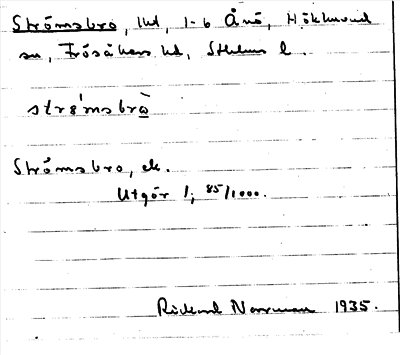 Strömsbro, hd, 1-6 Ånö, Hökhuvud
sn, Frösåkers hd, Sthlms l.
strömsbrò
Strömsbro, ek.
Utgör 1; 85/1000.
Rickard Norrman 1935.